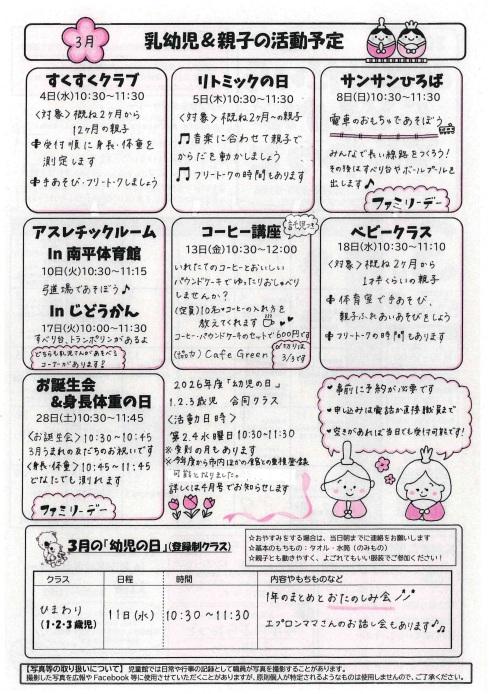 3月
乳幼児&親子の活動予定
すくすくクラブ
4日(水)10:30~11:30
〈対象〉概ね2ヶ月から
12ヶ月の親子
受付順に身長・体重を
測定します
手あそび・フリートークしましょう
リトミックの日
5日(木)10:30~11:30
〈対象〉概ね2ヶ月~の親子
音楽に合わせて親子で
からだを動かしましょう
フリートークの時間もあります
サンサンひろば
8日(日)10:30~11:30
電車のおもちゃであそぼう
みんなで長い線路をつくろう!
その後はすべり台やボールプールを
出します♪
ファミリーデー
アスレチックルーム
In 南平体育館
10日(火)10:30~11:15
弓道場であそぼう♪
In じどうかん
17日(火)10:00~11:30
すべり台、トランポリンがあるよ
どちらも乳児さんがあそべる
コーナーがあります!
コーヒー講座
託児つき
13日(金)10:30~12:00
いれたてのコーヒーとおいしい
パウンドケーキでゆったりおしゃべり
しませんか?
〈定員〉10名・コーヒーの入れ方を
教えてくれます
コーヒー・パウンドケーキのセットで600円です
〆切りは
3/3です
〈協力〉Cafe Green
ベビークラス
18日(水)10:30~11:10
〈対象〉概ね2ヶ月から
1才半くらいの親子
体育室で手あそび、
親子ふれあいあそびをしよう
フリートークの時間もあります
お誕生会
&身長体重の日
28日(土)10:30~11:45
〈お誕生会〉10:30~10:45
3月うまれの友だちのお祝いです
〈身長・体重〉10:45~11:45
どなたでも測れます
ファミリーデー
2026年度「幼児の日」
1.2.3歳児 合同クラス
〈活動日時〉
第2.4水曜日10:30~11:30
※変則の月もあります
※今年度から市内ほかの館との重複登録
可能となりました。
詳しくは4月号でお知らせします
事前に予約が必要です
申込みは電話か直接職員まで
空きがあれば当日でも受付可能です!
3月の「幼児の日」(登録制クラス)
☆おやすみをする場合は、当日朝までに連絡をお願いします
☆基本のもちもの:タオル・水筒(のみもの)
☆親子とも動きやすく、よごれてもいい服装でご参加ください!
クラス 日程 時間 内容やもちものなど
ひまわり
(1・2・3歳児)
11日(水)
10:30~11:30
1年のまとめとおたのしみ会
エプロンママさんのお話し会もあります♪
【写真等の取り扱いについて】児童館では日常や行事の記録として職員が写真を撮影することがあります。
撮影した写真を広報やFacebook等に使用させていただくことがありますが、原則個人が特定されるようなものは使用しませんので、ご了承ください。